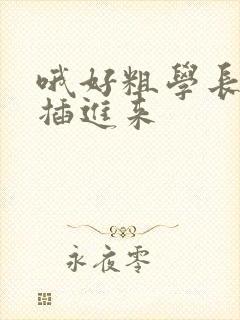 哦好粗學長
插進来
永夜零